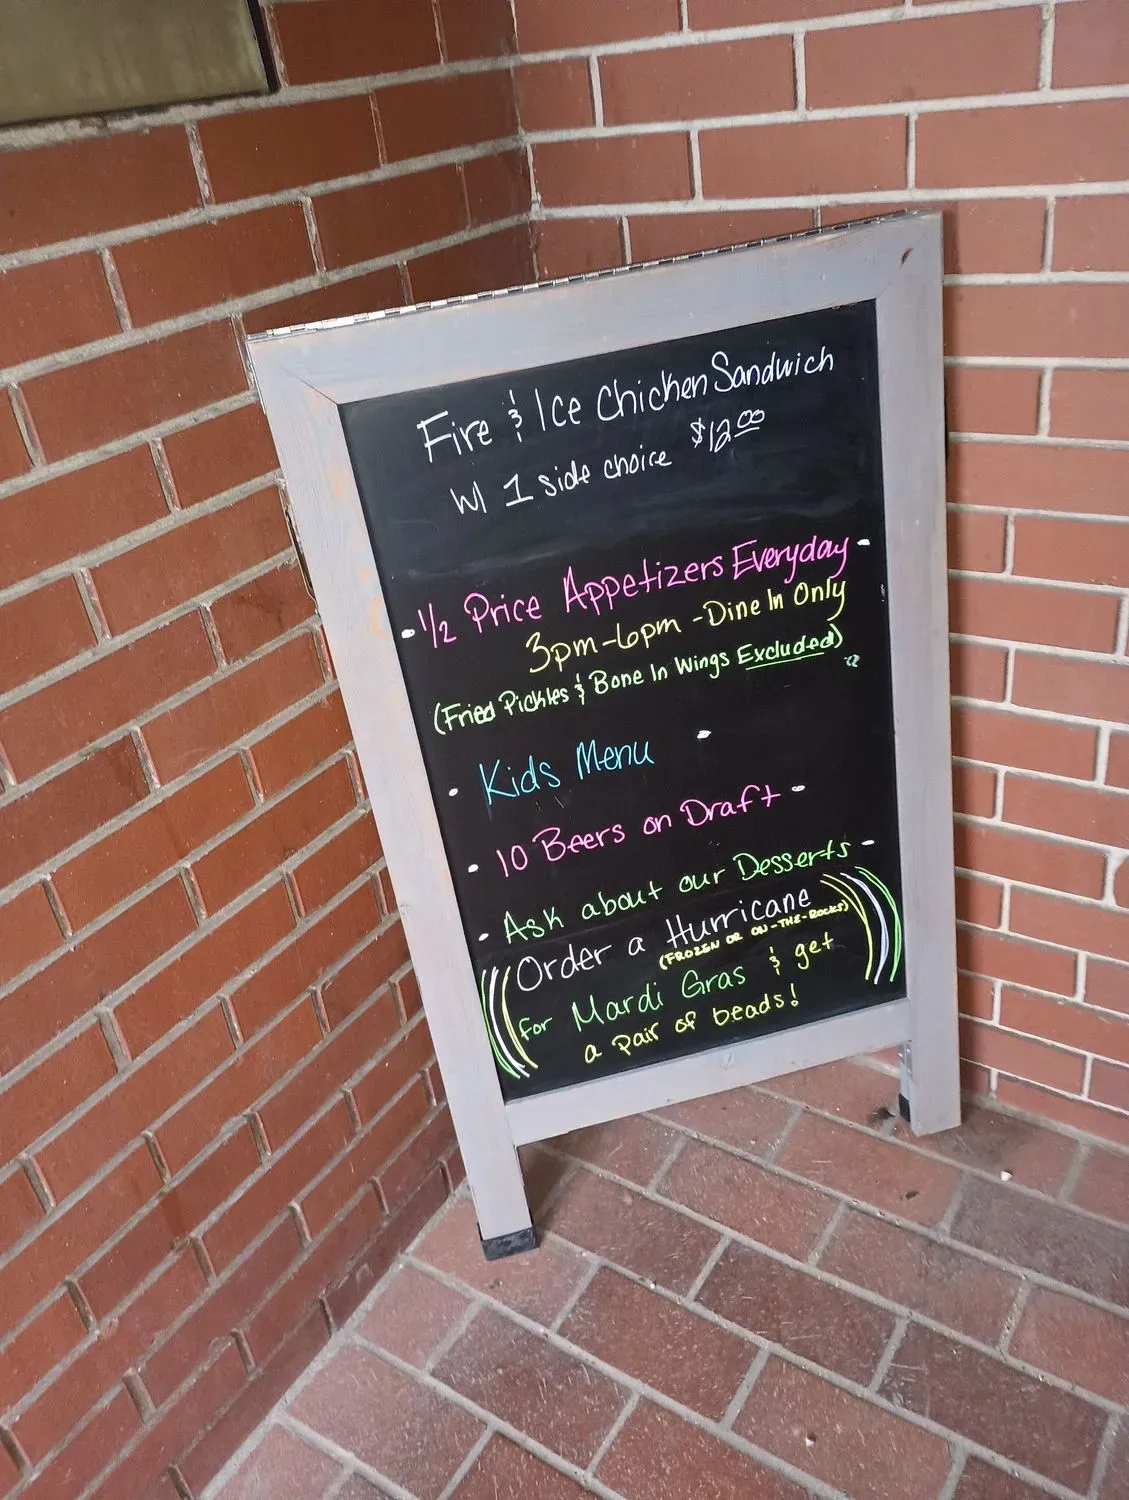 Fire & Ice Chicken Sandwich
w/ 1 side choice $12.00
1/2 Price Appetizers Everyday
3pm-6pm - Dine In Only
(Fried Pickles & Bone In Wings Excluded)
Kids Menu
10 Beers on Draft
Ask about our Desserts
Order a Hurricane
(FROZEN OR ON-THE-ROCKS)
for Mardi Gras & get
a pair of beads!